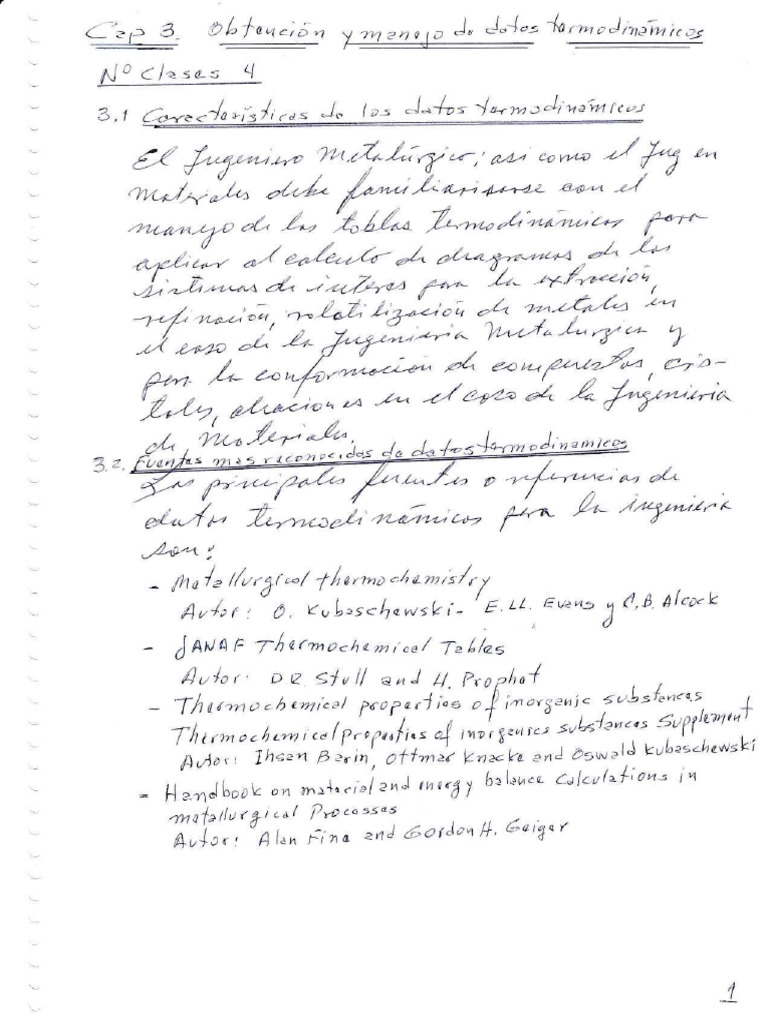 Cap 3. Obtención y manejo de datos termodinámicos
Nº Clases 4
3.1 Características de los datos termodinámicos
El Ingeniero Metalúrgico; asi como el Ing en
Materiales debe familiarisarse con el
manejo de las tablas termodinámicas para
aplicar al calculo de diagramas de los
sistemas de interes para la extracción,
refinación, volatilización de metales en
el caso de la Ingenieria Metalurgica y
para la conformación de compuestos, cris-
tales, aleaciones en el caso de la Ingenieria
de Materiales.
3.2. Fuentes mas reconocidas de datos termodinamicos
Las principales fuentes o referencias de
datos termodinámicos para la ingenieria
son:
- Metallurgical thermochemistry
Autor: O. Kubaschewski- E.LL. Evans y C.B. Alcock
- JANAF Thermochemical Tables
Autor: DR. Stull and H. Prophet
- Thermochemical properties of inorganic substances
Thermochemical properties of inorganics substances Supplement
Autor: Ihsan Barin, Ottmar Knacke and Oswald Kubaschewski
- Handbook on material and energy balance Calculations in
metallurgical Processes
Autor: Alan Fine and Gordon H. Geiger
1